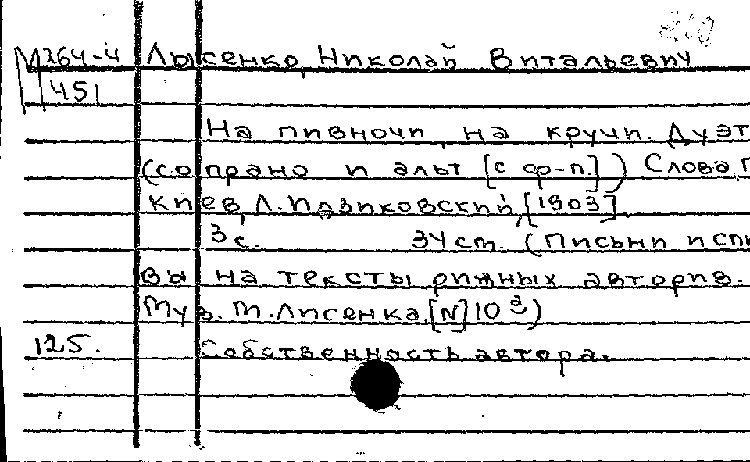 М264-4 Лысенко, Николай Витальевич
451
На пивночи, на кручи. Дуэт
(сопрано и альт [с ф-п.]) Слова Г
Киев, Л. Идзиковский, [1903]
3с. 34 cm. (Письни и спи
вы на тексты рижных авторив.
Муз. М. Лисенка. [N] 10 а)
125. Собственность автора.